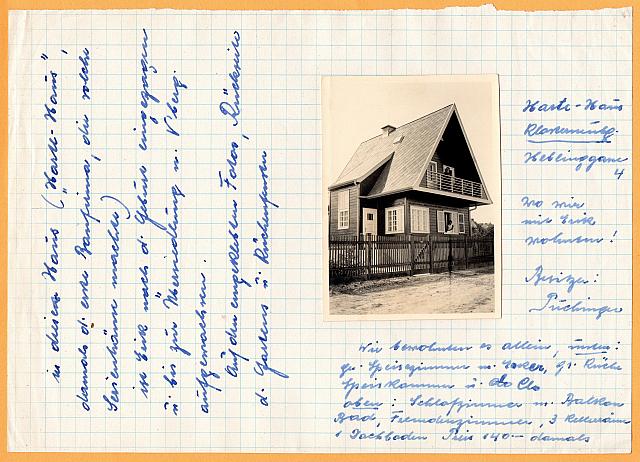 in diesem Haus ("Harte-Haus",
damals d. erste Baufirma, die solche
Serienhäuser machte)
ist Erik nach d. Geburt eingezogen
u. bis zur Übersiedlung n. V'berg.
aufgewachsen.
Auf den eingeklebten Fotos, Rückseite
d. Gartens u. Küchenfenster
Harte-Haus
Klosterneubg.
Heblinggasse
4
Wo wir
mit Erik
wohnten!
Besitzer:
Puchinger
Wir bewohnten es allein, unten:
gr. Speisezimmer m. Erker, gr. Küche
Speiskammer u. Clo
oben: Schlafzimmer m. Balkon
Bad, Fremdenzimmer, 3 Kellerräume
1 Dachboden Preis 140-- damals